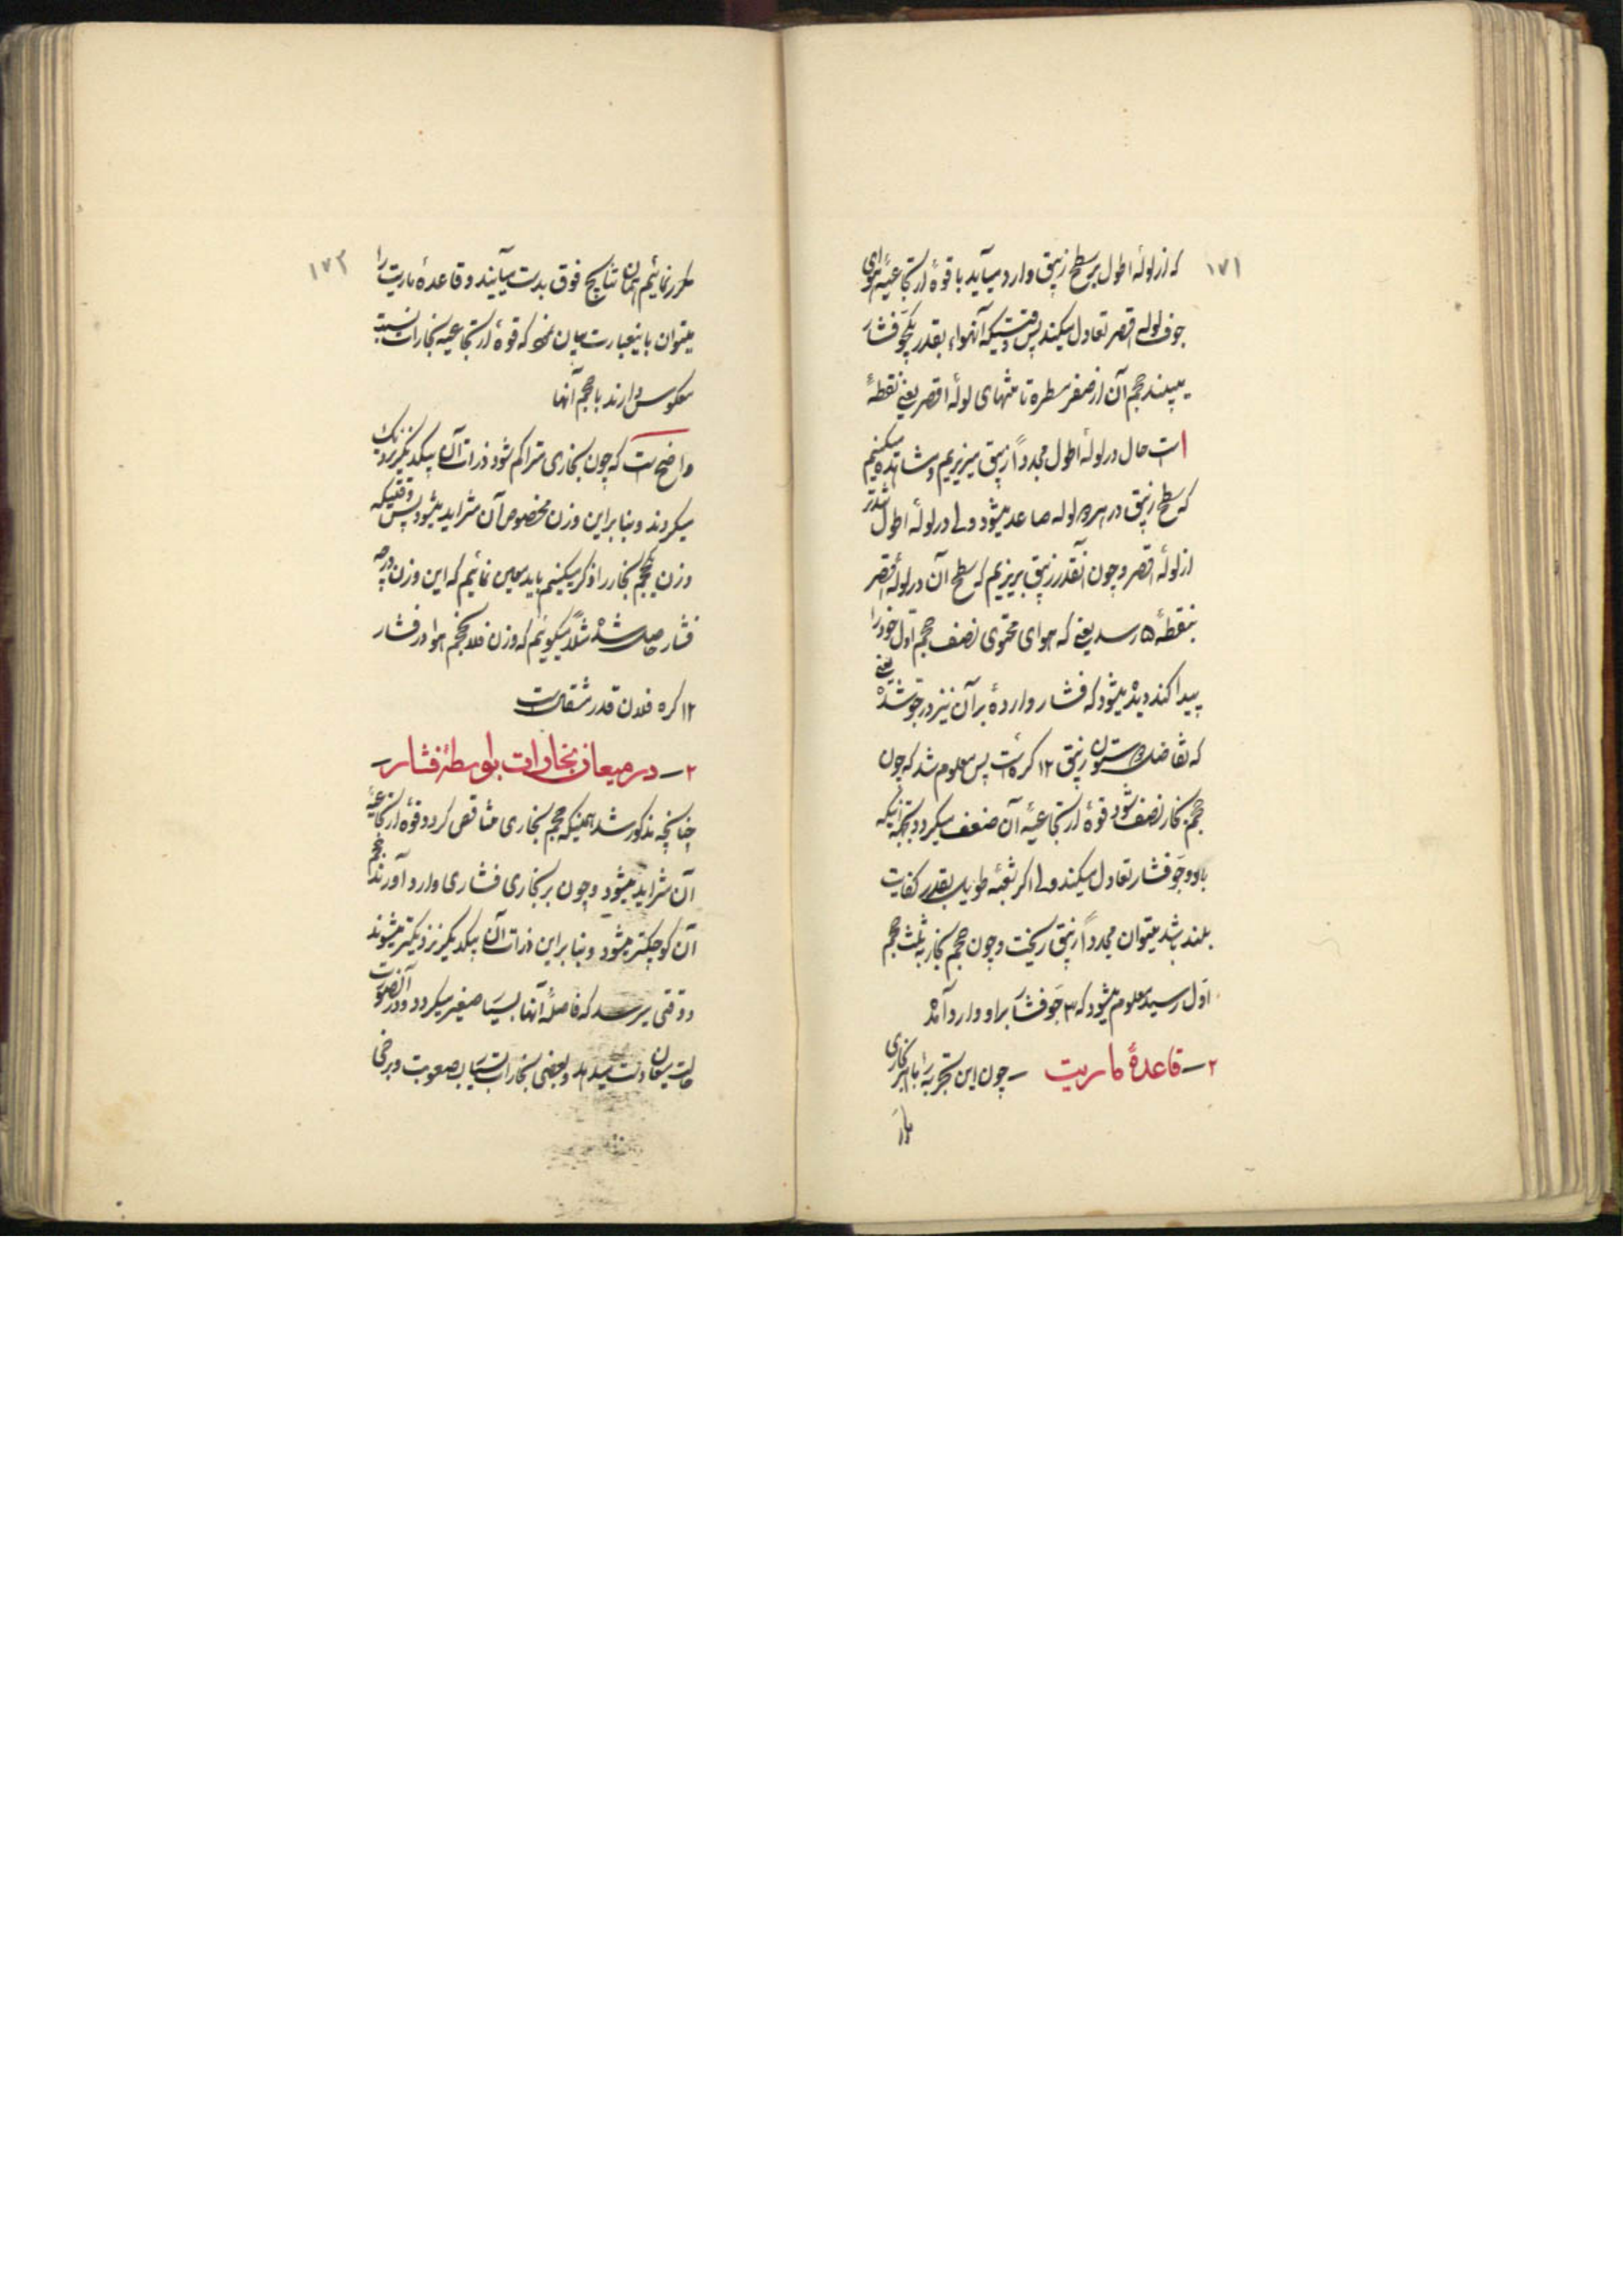 ۱۷۱
که از لولهٔ اطول بر سطح زیبق وارد میآید با قوهٔ ارتجاعیهٔ هوای
جوف لوله اقصر تعادل میکند پس وقتیکه آنهواء بقدر یکجو فشار
می‌بیند حجم آن از صفر مسطره تا منتهای لولهٔ اقصر یعنی نقطهٔ
است حال در لولهٔ اطول مجدداً زیبق میریزیم و مشاهده میکنیم
که سطح زیبق در هر دو لوله صاعد میشود ولی در لولهٔ اطول تندتر
از لولهٔ اقصر و چون آنقدر زیبق بریزیم که سطح آن در لولهٔ اقصر
بنقطهٔ ۵ رسد یعنی که هوای محتوی نصف حجم اول خود را
پیدا کند دیده میشود که فشار واردهٔ بر آن نیز دو جو شده یعنی
که تفاضل دو ستون زیبق ۱۲ گره است پس معلوم شد که چون
حجم بخار نصف شود قوهٔ ارتجاعیهٔ آن ضعف میگردد بجهة آنکه
با دو جو فشار تعادل میکند ولی اگر شعبهٔ طویل بقدر کفایت
بلند باشد میتوان مجدداً زیبق ریخت و چون حجم بخار به ثلث حجم
اول رسید معلوم میشود که ۳ جو فشار بر او وارد آمده
۲ – قاعدهٔ ماریت – چون این تجربه را با هر بخاری
۱۷۲
مکرر نمائیم همان نتایج فوق بدست میآیند و قاعدهٔ ماریت را
میتوان باینعبارت بیان نمود که قوهٔ ارتجاعیه بخارات نسبت
معکوس دارند با حجم آنها
واضح است که چون بخاری متراکم شود ذرات آن بیکدیگر نزدیک
میگردند و بنابراین وزن مخصوص آن متزاید میشود پس وقتیکه
وزن یکحجم بخار را ذکر میکنیم باید معین نمائیم که این وزن بچه درجه
فشار حاصل شده مثلاً میگوئیم که وزن فلان حجم هوا در فشار
۱۲ گره فلان قدر مثقال است
۲ – در میعان بخارات بواسطهٔ فشار –
چنانچه مذکور شد همینکه حجم بخاری متناقص گردد قوهٔ ارتجاعیهٔ
آن متزاید میشود و چون بر بخاری فشاری وارد آورند حجم
آن کوچکتر میشود و بنابراین ذرات آن بیکدیگر نزدیکتر میشوند
و وقتی میرسد که فاصلهٔ آنها بسیار صغیر میگردد و در آنصورت
حالت میعان دست میدهد و بعضی بخارات بسیار بصعوبت و برخی